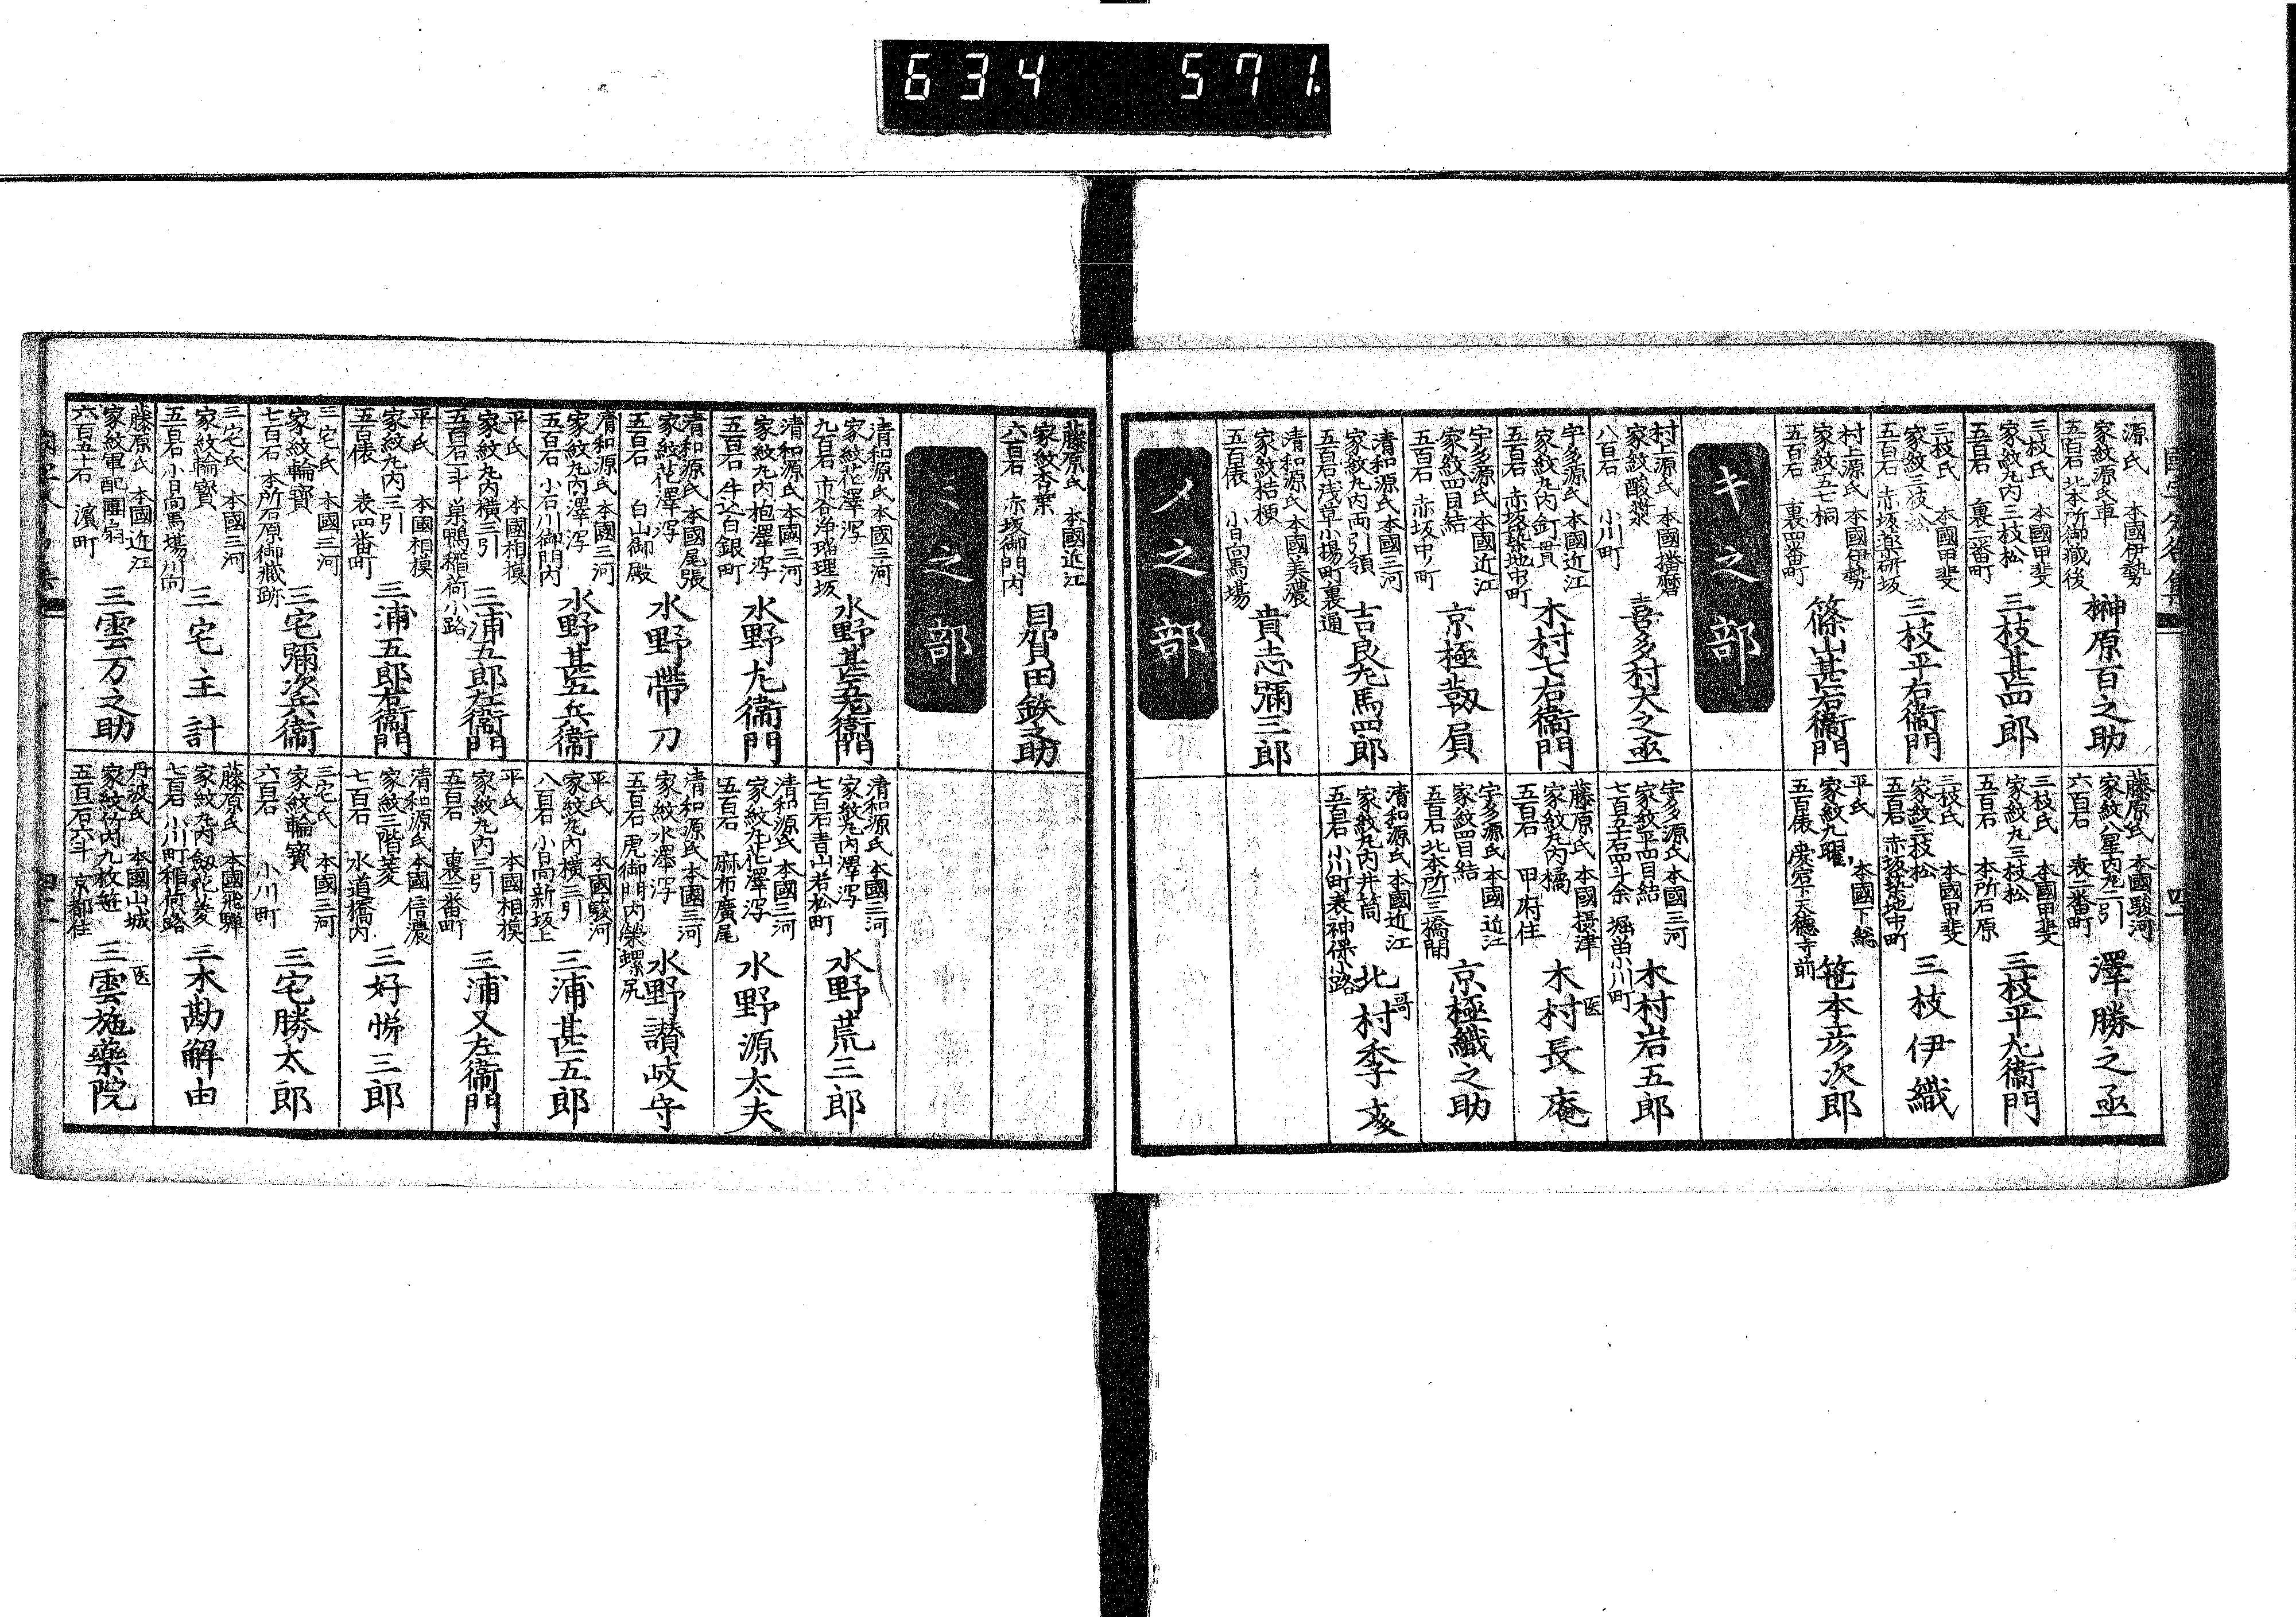 634 571
源氏 本國伊勢
家紋源氏車
五百石 北本所御藏後
榊原百之助
三枝氏 本國甲斐
家紋丸内三枝松
五百石 裏二番町
三枝甚四郎
三枝氏 本國甲斐
家紋三枝松
五百石 赤坂薬研坂
三枝平右衞門
村上源氏 本國伊勢
家紋五七桐
五百石 裏四番町
篠山甚右衞門
キ之部
村上源氏 本國播磨
家紋酸漿
八百石 小川町
喜多村大之丞
宇多源氏 本國近江
家紋丸内釘貫
五百石 赤坂築地中町
木村七右衞門
宇多源氏 本國近江
家紋四目結
五百石 赤坂中ノ町
京極靱負
清和源氏 本國三河
家紋丸内両引領
五百石 浅草小揚町裏通
吉良九馬四郎
清和源氏 本國美濃
家紋桔梗
五百俵 小日向馬場
貴志彌三郎
メ之部
藤原氏 本國駿河
家紋八星内丸二引
六百石 表二番町
澤勝之丞
三枝氏 本國甲斐
家紋丸三枝松
五百石 本所石原
三枝平九衞門
三枝氏 本國甲斐
家紋三枝松
五百石 赤坂築地中町
三枝伊織
平氏 本國下総
家紋九曜
五百俵 愛宕下天德寺前
笹本彦次郎
宇多源氏 本國三河
家紋平四目結
七百五十石四斗余 堀留小川町
木村岩五郎
藤原氏 本國摂津
家紋丸内橘
五百石 甲府住
医
木村長庵
宇多源氏 本國近江
家紋四目結
五百石 北本所三橋間
京極織之助
清和源氏 本國近江
家紋丸内井筒
五百石 小川町表神保小路
哥
北村季文
藤原氏 本國近江
家紋杏葉
六百石 赤坂御門内
目賀田鉄之助
ミ之部
清和源氏 本國三河
家紋花澤瀉
九百石 市谷浄瑠璃坂
水野甚五左衞門
清和源氏 本國三河
家紋丸内抱澤瀉
五百石 牛込白銀町
水野九衞門
清和源氏 本國尾張
家紋花澤瀉
五百石 白山御殿
水野帶刀
清和源氏 本國三河
家紋丸内澤瀉
五百石 小石川御門内
水野甚五兵衞
平氏 本國相摸
家紋丸内横三引
五百石二斗 巣鴨稲荷小路
三浦五郎左衞門
平氏 本國相摸
家紋丸内三引
五百俵 表四番町
三浦五郎右衞門
三宅氏 本國三河
家紋輪寶
七百石 本所石原御藏跡
三宅彌次兵衞
三宅氏 本國三河
家紋輪寶
五百石 小日向馬場川向
三宅主計
藤原氏 本國近江
家紋軍配團扇
六百五十石 濱町
三雲万之助
清和源氏 本國三河
家紋丸内澤瀉
七百石 青山若松町
水野荒三郎
清和源氏 本國三河
家紋丸花澤瀉
五百石 麻布廣尾
水野源太夫
清和源氏 本國三河
家紋水澤瀉
五百石 虎御門内榮螺尻
水野讃岐守
平氏 本國駿河
家紋丸内横三引
八百石 小日向新坂上
三浦甚五郎
平氏 本國相摸
家紋丸内三引
五百石 裏二番町
三浦又左衞門
清和源氏 本國信濃
家紋三階菱
七百石 水道橋内
三好悌三郎
三宅氏 本國三河
家紋輪寶
六百石 小川町
三宅勝太郎
藤原氏 本國飛騨
家紋丸内劔花菱
七百石 小川町稲荷路
三木勘解由
丹波氏 本國山城
家紋竹内九枚笹
五百石六斗 京都住
医
三雲施藥院